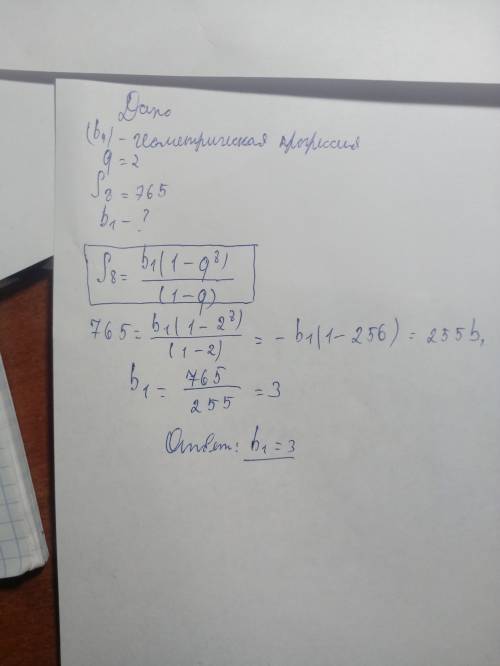 Дано
(bₙ) - геометрическая прогрессия
q = 2
S₈ = 765
b₁ - ?
S₈ = b₁(1 - q⁸) / (1 - q)
765 = b₁(1 - 2⁸) / (1 - 2) = - b₁(1 - 256) = 255b₁
b₁ = 765 / 255 = 3
Ответ: b₁ = 3